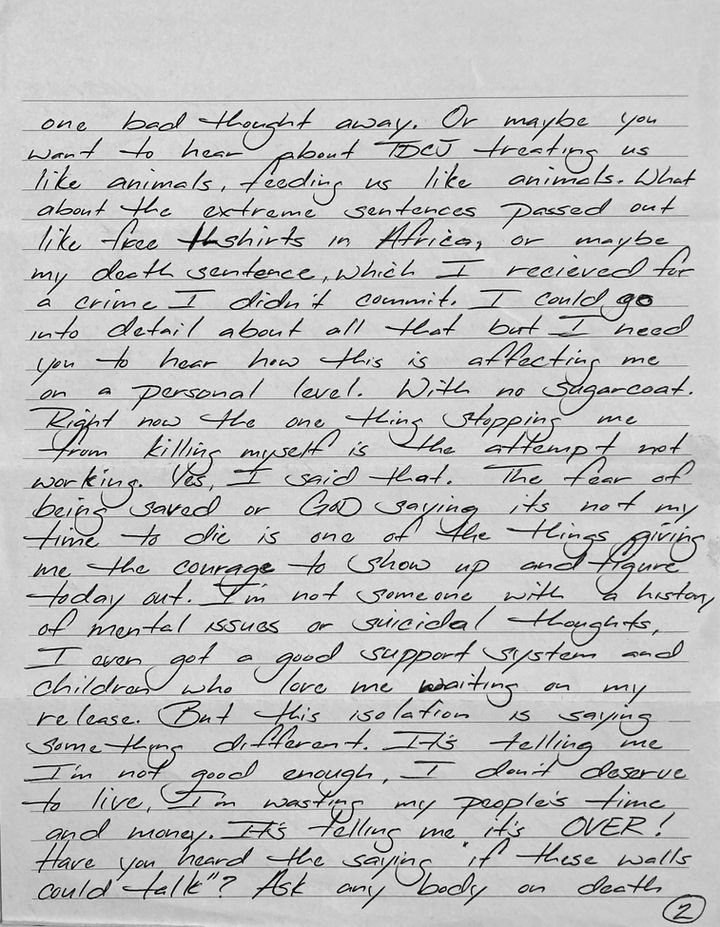 one bad thought away. Or maybe you
want to hear about TDCJ treating us
like animals, feeding us like animals. What
about the extreme sentences passed out
like free shirts in Africa, or maybe
my death sentence, which I recieved for
a crime I didn't commit. I could go
into detail about all that but I need
you to hear how this is affecting me
on a personal level. With no sugarcoat.
Right now the one thing stopping me
from killing myself is the attempt not
working. Yes, I said that. The fear of
being saved or GOD saying its not my
time to die is one of the things giving
me the courage to show up and figure
today out. I'm not someone with a history
of mental issues or suicidal thoughts,
I even got a good support system and
children who love me waiting on my
release. But this isolation is saying
something different. It's telling me
I'm not good enough, I don't deserve
to live, I'm wasting my people's time
and money. It's telling me it's OVER!
Have you heard the saying "if these walls
could talk"? Ask any body on death
2